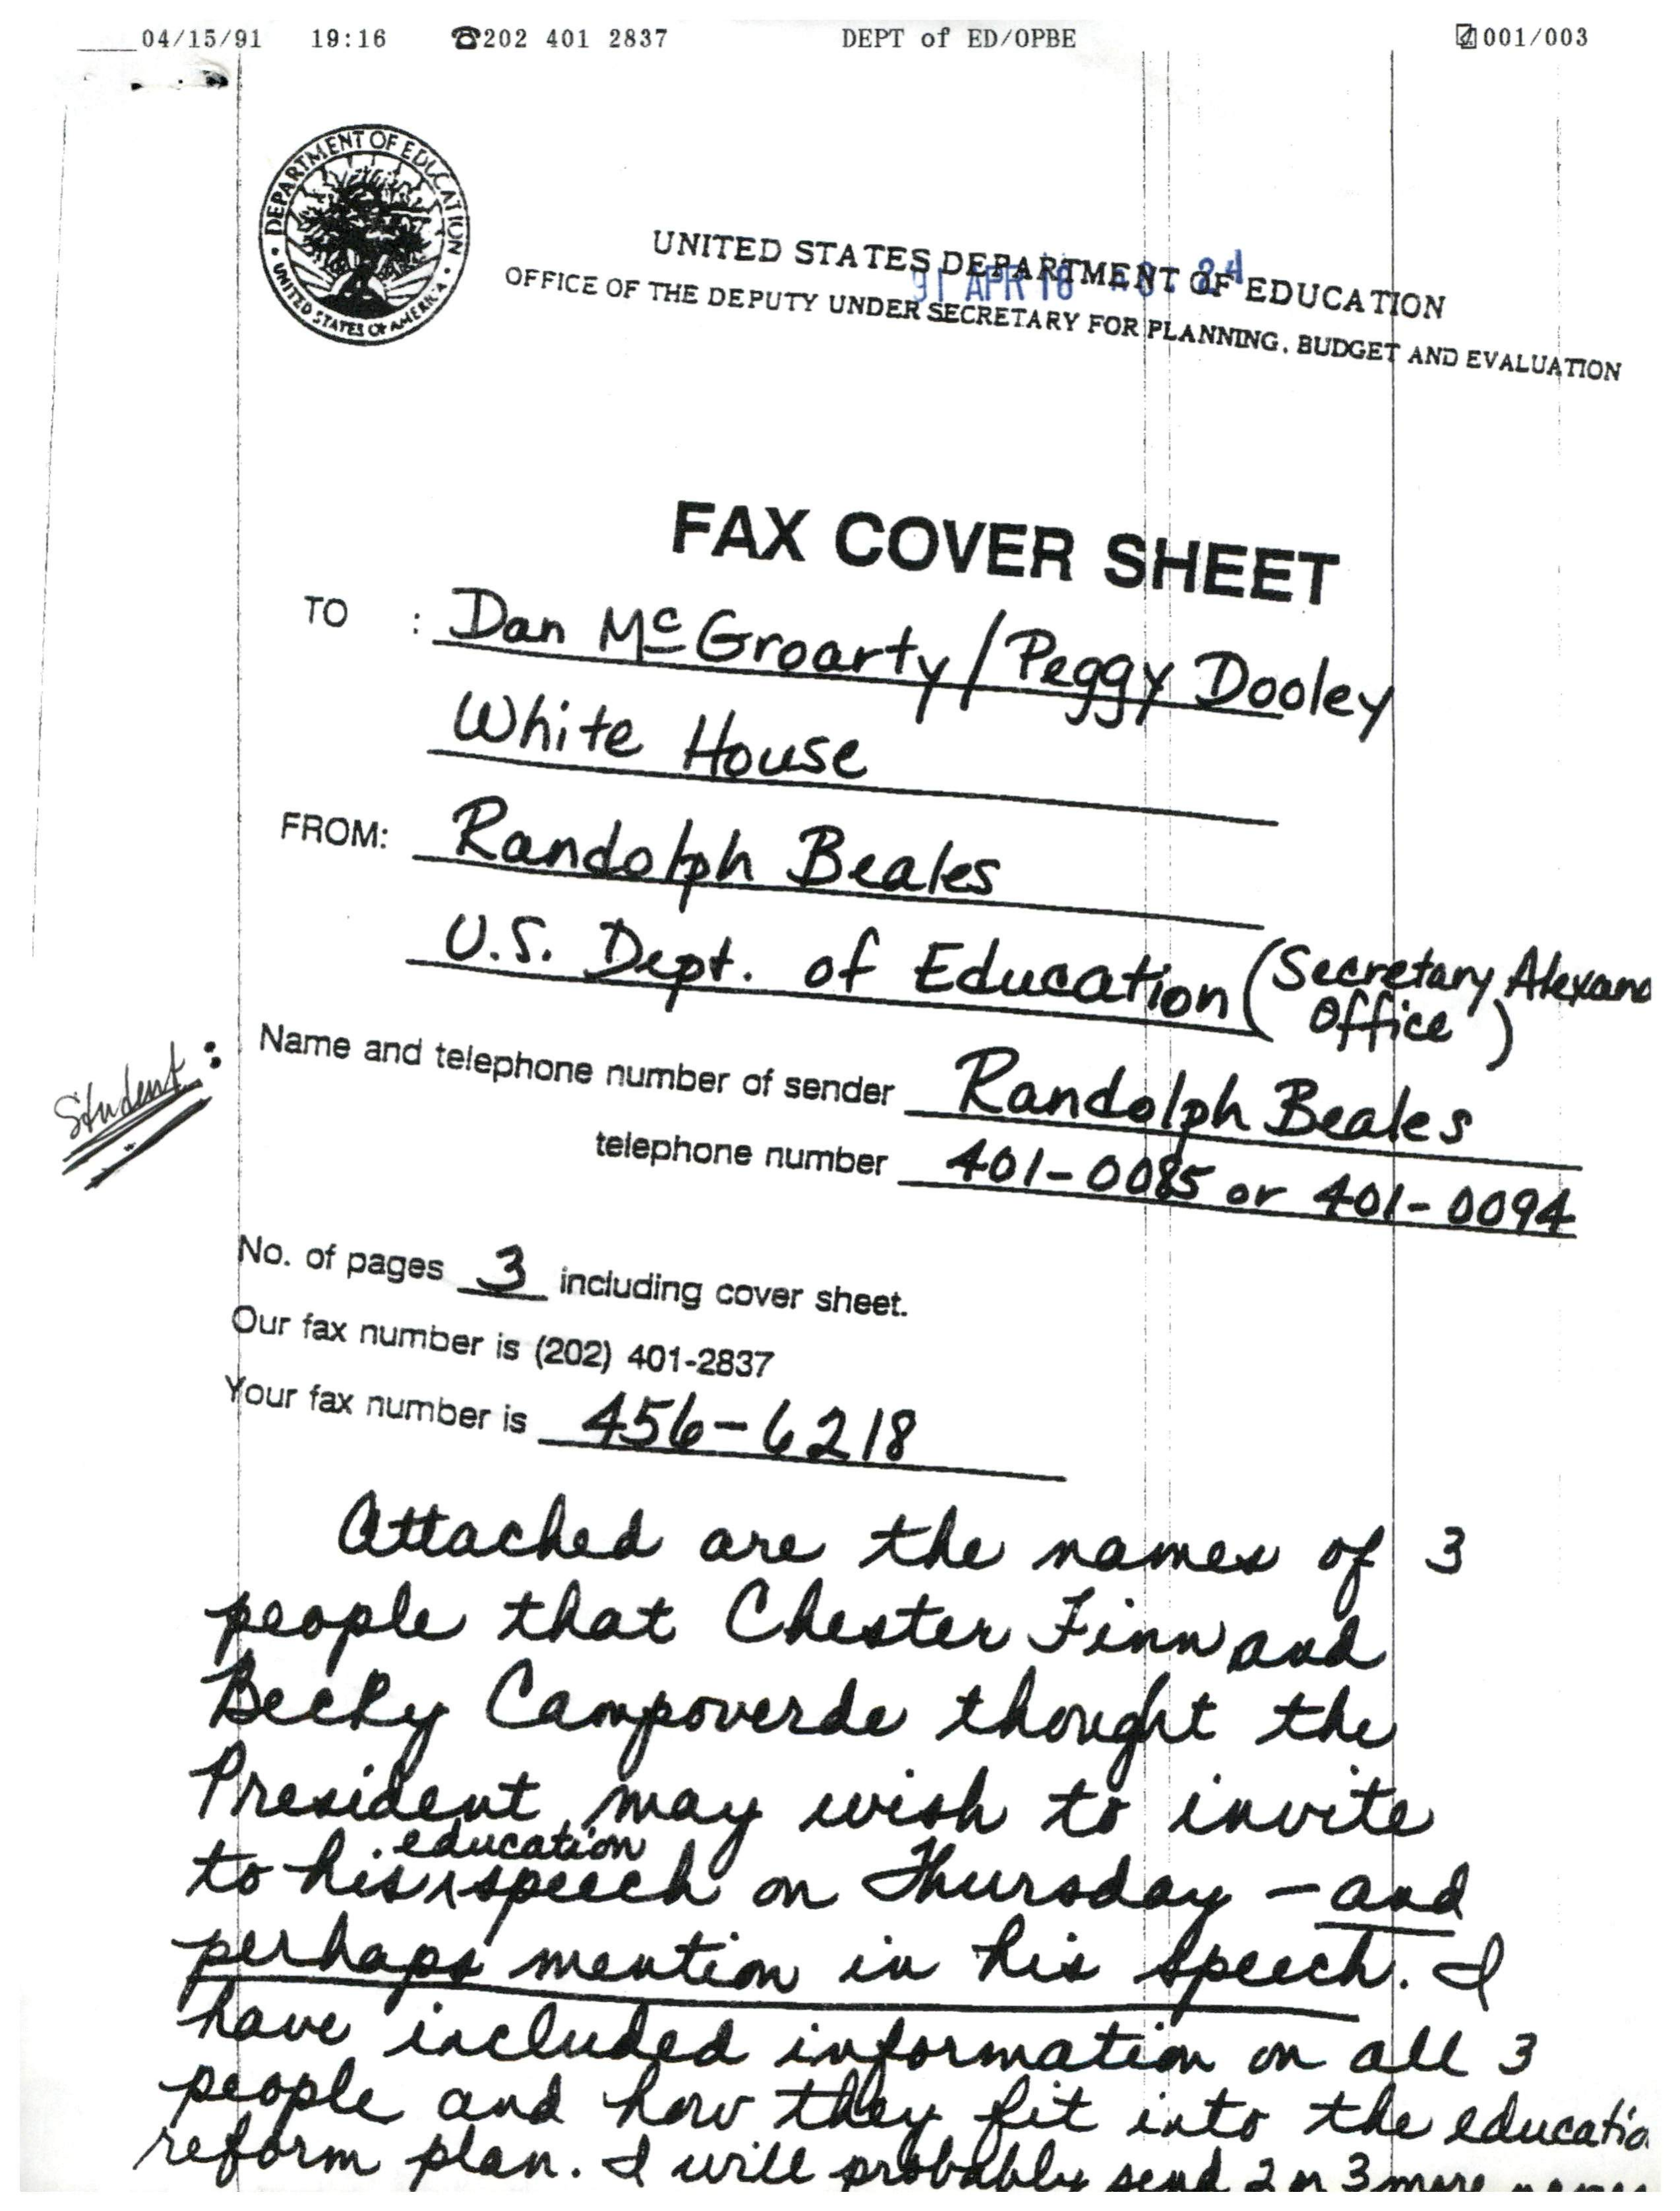 04/15/91 19:16 ☎202 401 2837 DEPT of ED/OPBE 001/003
DEPARTMENT OF EDUCATION
UNITED STATES OF AMERICA
UNITED STATES DEPARTMENT OF EDUCATION
91 APR 16 24
OFFICE OF THE DEPUTY UNDER SECRETARY FOR PLANNING, BUDGET AND EVALUATION
FAX COVER SHEET
TO : Dan McGroarty / Peggy Dooley
White House
FROM: Randolph Beales
U.S. Dept. of Education (Secretary Alexand
Office)
Student:
Name and telephone number of sender Randolph Beales
telephone number 401-0085 or 401-0094
No. of pages 3 including cover sheet.
Our fax number is (202) 401-2837
Your fax number is 456-6218
Attached are the names of 3
people that Chester Finn and
Becky Campoverde thought the
President may wish to invite
to his education speech on Thursday - and
perhaps mention in his speech. I
have included information on all 3
people and how they fit into the educatio
reform plan. I will probably send 2 or 3 more